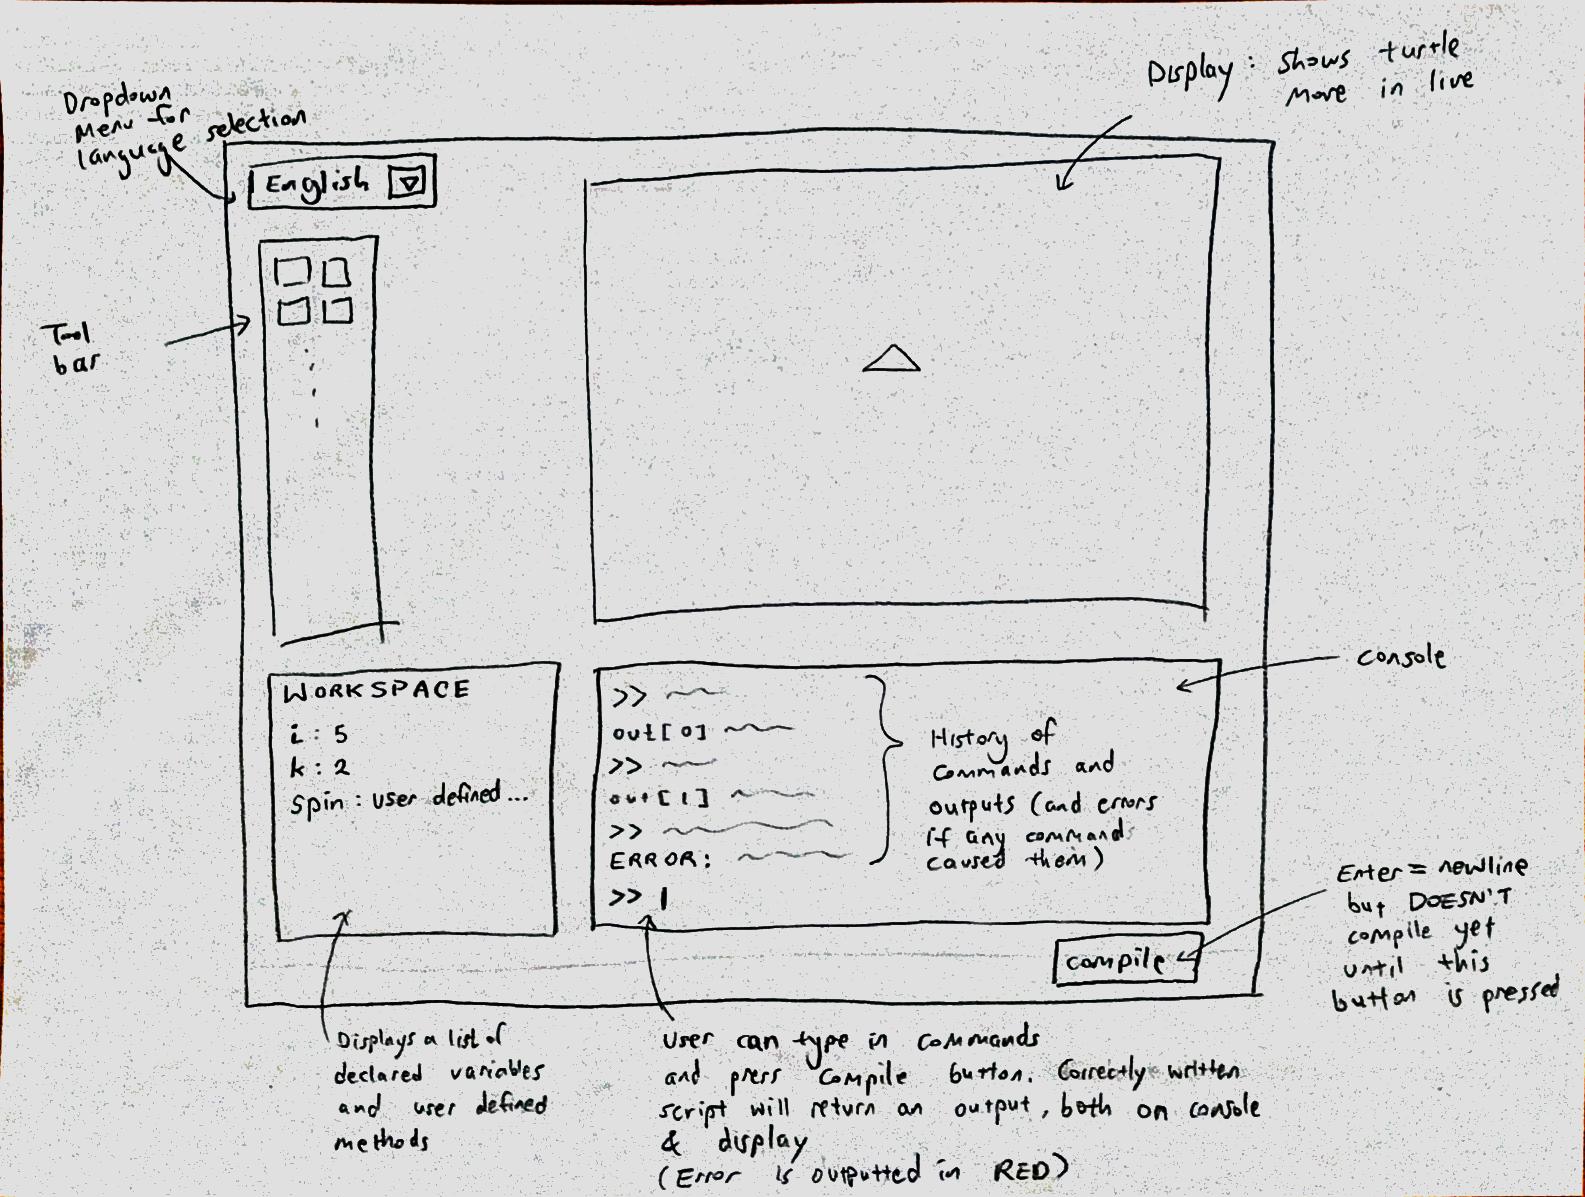 Display: Shows turtle
move in live
Dropdown
menu for
language selection
English
Tool
bar
WORKSPACE
i : 5
k : 2
spin : user defined...
>>
out[0]
>>
out[1]
>>
ERROR:
>>
History of
commands and
outputs (and errors
if any commands
caused them)
console
compile
Enter = newline
but DOESN'T
compile yet
until this
button is pressed
Displays a list of
declared variables
and user defined
methods
User can type in commands
and press compile button. Correctly written
script will return an output, both on console
& display
(Error is outputted in RED)